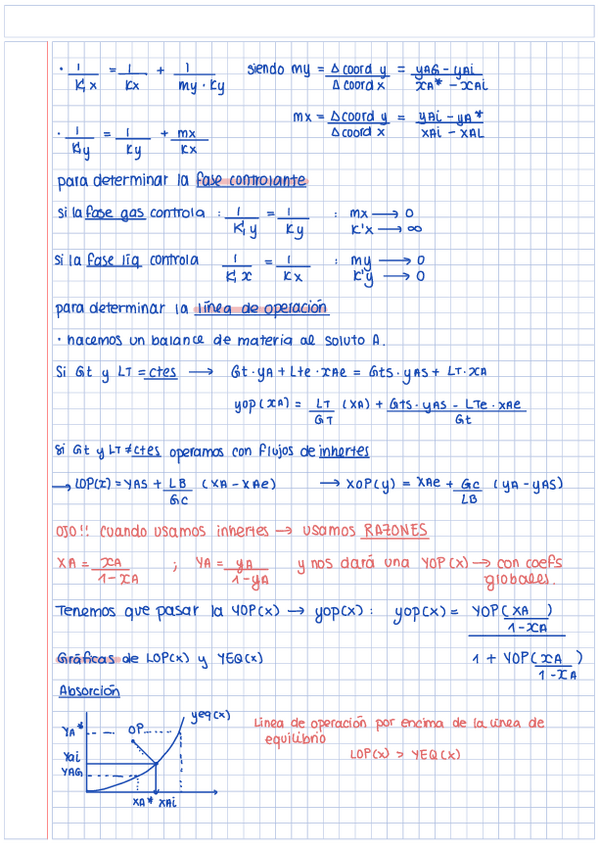 · 1/K'x = 1/Kx + 1/(my · Ky) siendo my = Δ coord y/Δ coord x = (yAG - yAi)/(xA* - xAi)
mx = Δ coord y/Δ coord x = (yAi - yA*)/(xAi - xAL)
· 1/K'y = 1/Ky + mx/Kx
para determinar la fase controlante
si la fase gas controla : 1/K'y = 1/Ky : mx → 0
K'x → ∞
si la fase líq controla 1/K'x = 1/Kx : my → 0
K'y → 0
para determinar la línea de operación
· hacemos un balance de materia al soluto A.
Si Gt y LT = ctes → Gt·yA + Lte·xAe = Gts·yAs + LT·xA
yop(xA) = LT/GT (xA) + (Gts·yAs - LTe·xAe)/Gt
Si Gt y LT ≠ ctes operamos con flujos de inhertes
→ LOP(x) = YAS + LB/GC (XA - XAe) → XOP(y) = XAe + GC/LB (YA - YAS)
OJO!! Cuando usamos inhertes → usamos RAZONES
XA = xA/(1-xA) ; YA = yA/(1-yA) y nos dará una YOP(x) → con coefs
globales.
Tenemos que pasar la YOP(x) → yop(x) : yop(x) = YOP(xA/(1-xA))/(1 + YOP(xA/(1-xA)))
Gráficas de LOP(x) y YEQ(x)
Absorción
yeq(x)
YA* OP
Yai
YAG
XA* XAi
Linea de operación por encima de la línea de
equilibrio
LOP(x) > YEQ(x)